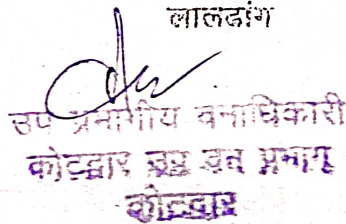 लालढांग
उप प्रभागीय वनाधिकारी
कोटद्वार उप वन प्रभाग
कोटद्वार